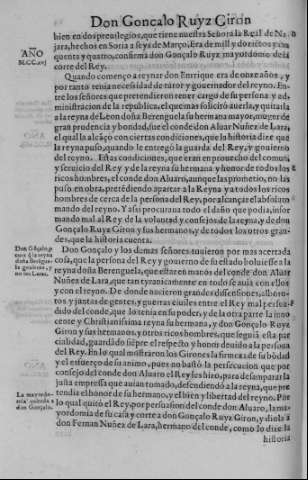 Don Gonçalo Ruyz Giron
bien en dos preuilegios, que tiene nuestra Señora la Real de Na-
AÑO
M.CC.xvj
jara, hechos en Soria a seys de Março, Era de mill y dozientos y cin-
quenta y quatro, confirma don Gonçalo Ruyz mayordomo de la
corte del Rey.
Quando começo a reynar don Enrrique era de onze años, y
por tanto tenia necessidad de tutor y gouernador del reyno. En-
tre los señores que pretendieron tener cargo de su persona y ad-
ministracion de la republica, el que mas solicitò auerla, y quitarla
a la reyna de Leon doña Berenguela su hermana mayor, muger de
gran prudencia y bondad, fue el conde don Aluar Nuñez de Lara,
el qual la alcãço con ciertas condiciones, que la historia dize que
la reyna puso, quando le entregò la guarda del Rey, y gouierno
del reyno. Estas condiciones, que eran en prouecho del comun,
y seruicio del Rey y de la reyna su hermana y honor de todos los
ricos hombres, el conde don Aluaro, aunque las prometio, no las
puso en obra, pretẽdiendo apartar a la Reyna y a todos los ricos
hombres de cerca de la persona del Rey, por alcançar el absoluto
mando del reyno. Y assi procuraua todo el daño que podia, infor-
mando mal al Rey de la voluntad y consejos de la reyna, y de don
Gonçalo Ruyz Giron y sus hermanos, y de todos los otros gran-
des, que la historia cuenta.
Don Gonçalo y los demas señores tuuieron por mas acertada
cosa, que la persona del Rey y gouierno de su estado boluiesse a la
reyna doña Berenguela, que estar en manos del conde don Aluar
Nuñez de Lara, que tan tyranicamente en todo se auia con ellos
y con el reyno. De donde nacieron grandes dissensiones, alboro-
tos y juntas de gentes, y guerras ciuiles entre el Rey mal persua-
dido del conde, que lo tenia en su poder, y de la otra parte la inno-
cente y Christianissima reyna su hermana, y don Gonçalo Ruyz
Giron y sus hermanos, y otros ricos hombres, que seguiã esta par
cialidad, guardãdo siẽpre el respecto y honor deuido a la persona
del Rey. En lo qual mostraron los Girones la firmeza de su bõdad
y el esfuerço de su animo, pues no bastò la persecucion que por
consejo del conde don Aluaro el Rey les hizo, para desamparar la
justa empressa que auian tomado, defendiendo a la reyna, que pre-
tendia el honor de su hermano, y el bien y libertad del reyno. Por
lo qual quitò el Rey, por persuasion del conde don Aluaro, la ma-
yordomia de su casa y corte a don Gonçalo Ruyz Giron, y diola à
don Fernan Nuñez de Lara, hermano del conde, como lo dize la
historia